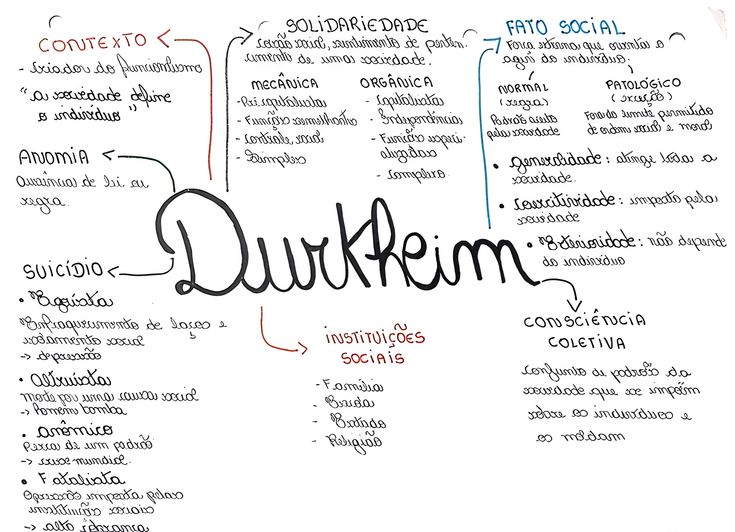 CONTEXTO
- criador do funcionalismo
"a sociedade define
o indivíduo"
ANOMIA
Ausências de lei ou
regra.
SUICÍDIO
• Egoísta
Enfraquecimento de laços e
isolamento social
-> depressão
• Altruísta
Morte por uma causa social
-> homem bomba
• anômico
Perca de um padrão
-> crise mundial.
• Fatalista
Opressão imposta pelas
instituições sociais
-> alta cobrança
SOLIDARIEDADE
coesão social, sentimento de perten-
cimento de uma sociedade.
MECÂNICA
- Pré capitalista
- Funções semelhantes
- controle social
- Simples
ORGÂNICA
- capitalista
- Independência
- Funções especi-
alizadas
- complexa
FATO SOCIAL
Força externa que orienta o
agir do indivíduo.
NORMAL
(regra)
Padrão aceito
pela sociedade
PATOLÓGICO
(exceção)
Fora do limite permitido
de ordem social e moral
• generalidade: atinge toda a
sociedade.
• coercitividade: imposto pela
sociedade
• Exterioridade: não depende
do indivíduo
Durkheim
INSTITUIÇÕES
SOCIAIS
- Família
- Escola
- Estado
- Religião
CONSCIÊNCIA
COLETIVA
conjunto de padrões da
sociedade que se impõem
sobre os indivíduos e
os moldam